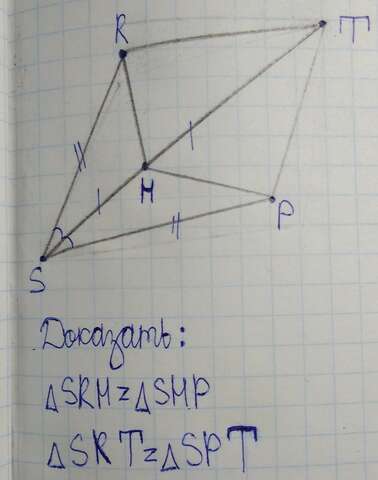 R
T
H
P
S
Доказать:
△SRH=△SHP
△SRT=△SPT